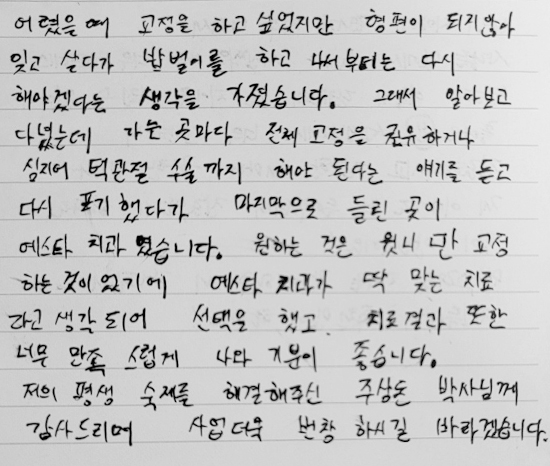 어렸을때 교정을 하고 싶었지만 형편이 되지않아
잊고 살다가 밥벌이를 하고 나서부터는 다시
해야겠다는 생각을 가졌습니다. 그래서 알아보고
다녔는데 가는 곳마다 전체 교정을 권유하거나
심지어 턱관절 수술까지 해야 된다는 얘기를 듣고
다시 포기했다가 마지막으로 들린 곳이
예스타 치과였습니다. 원하는 것은 윗니만 교정
하는것이 있기에 예스타 치과가 딱 맞는 치료
라고 생각되어 선택을 했고 치료결과 또한
너무 만족스럽게 나와 기분이 좋습니다.
저의 평생 숙제를 해결해주신 주상돈 박사님께
감사드리며 사업더욱 번창하시길 바라겠습니다.